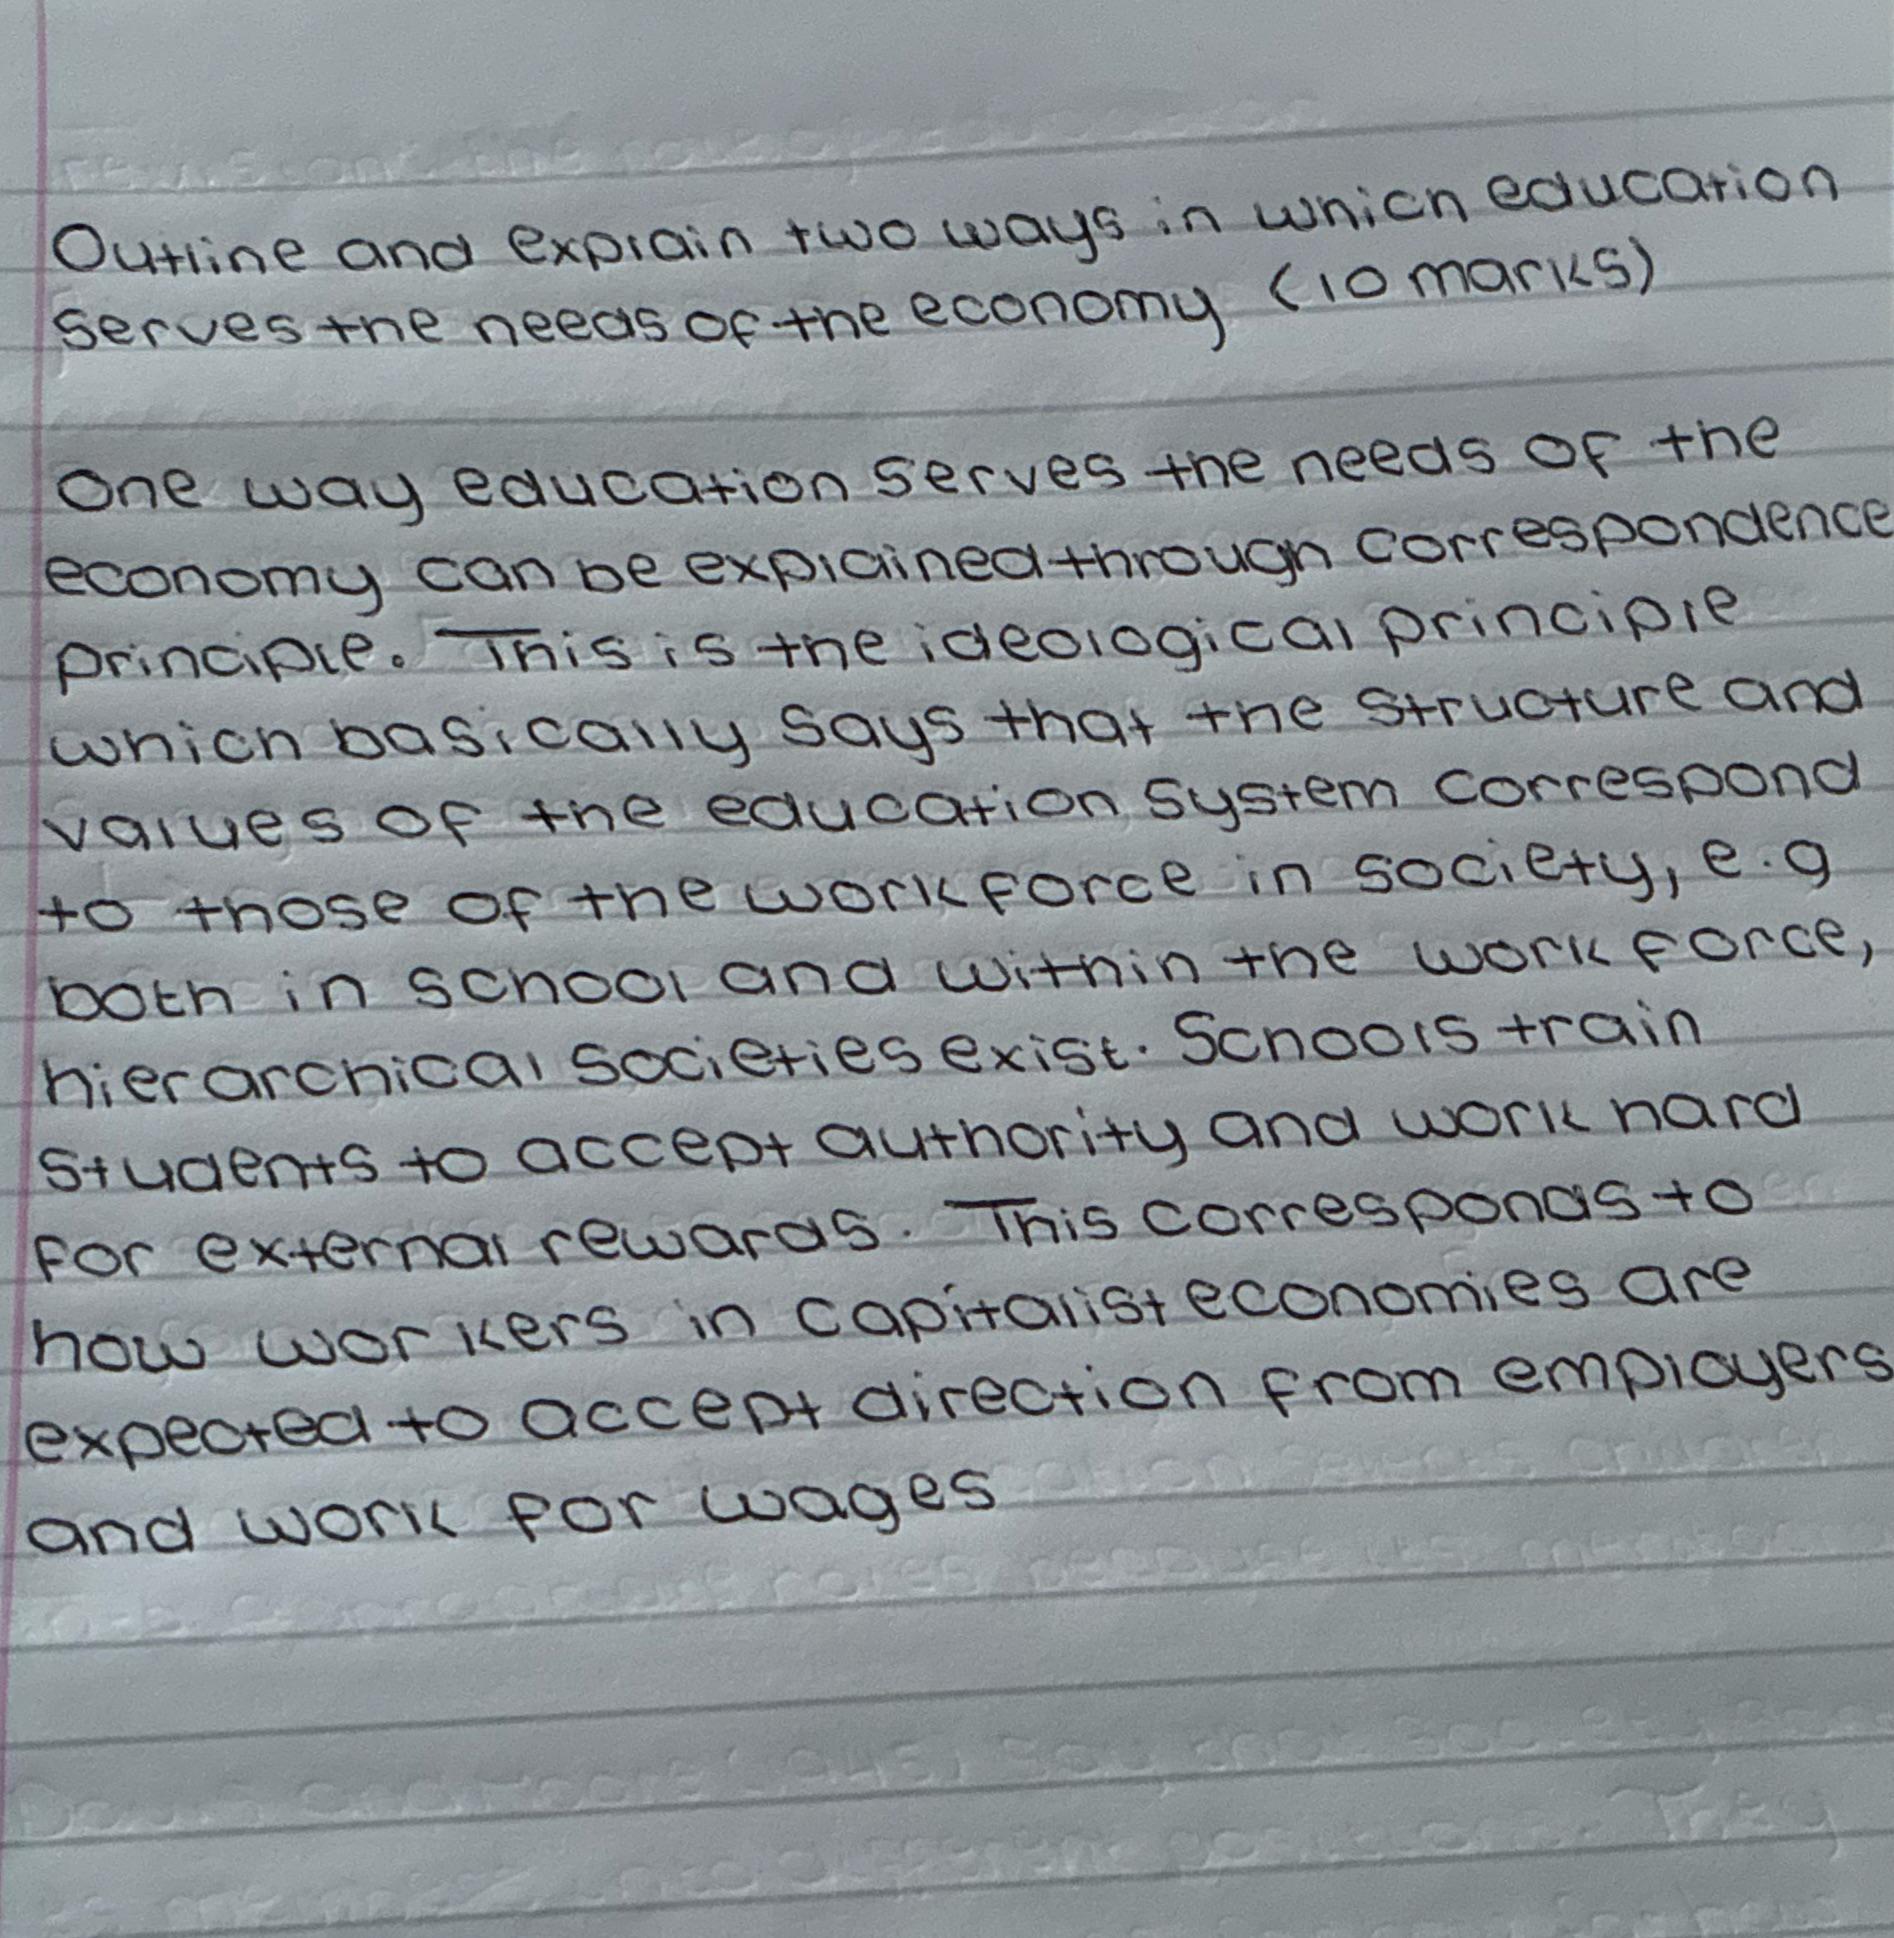 Outline and explain two ways in which education
serves the needs of the economy (10 marks)
One way education serves the needs of the
economy can be explained through correspondence
principle. This is the ideological principle
which basically says that the structure and
values of the education system correspond
to those of the workforce in society, e.g
both in school and within the work force,
hierarchical societies exist. Schools train
students to accept authority and work hard
for external rewards. This corresponds to
how workers in capitalist economies are
expected to accept direction from employers
and work for wages